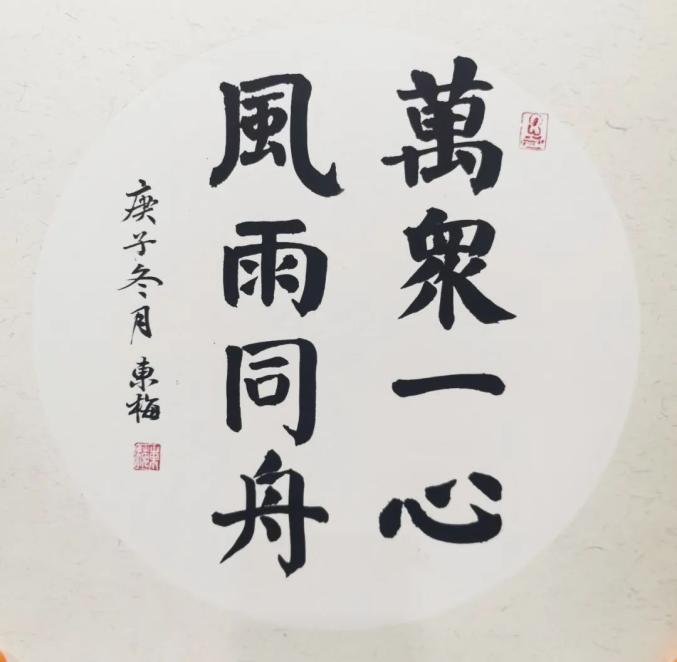 萬眾一心
風雨同舟
庚子冬月 東梅